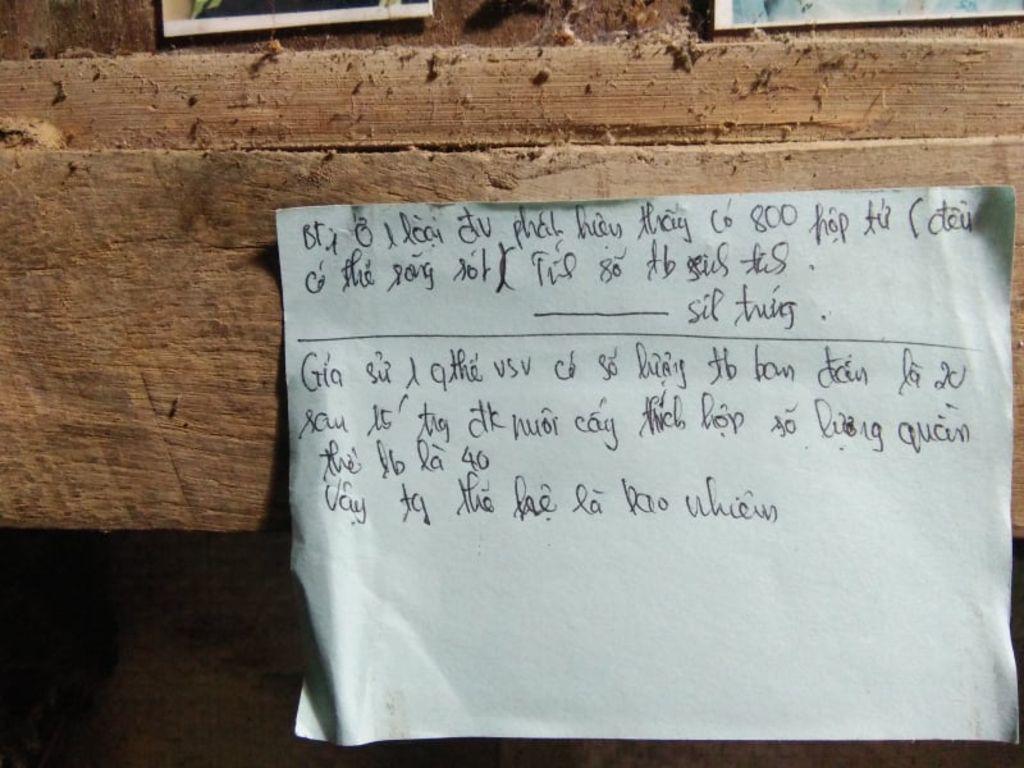 BT1 Ở 1 loài đv phát hiện thấy có 800 hợp tử (đều
có thể sống sót) Tính số tb sinh tinh.
sih trứng.
Giả sử 1 qthể VSV có số lượng tb ban đầu là 20
sau 15' trg đk nuôi cấy thích hợp số lượng quần
thể tb là 40
Vậy tg thế hệ là bao nhiêu